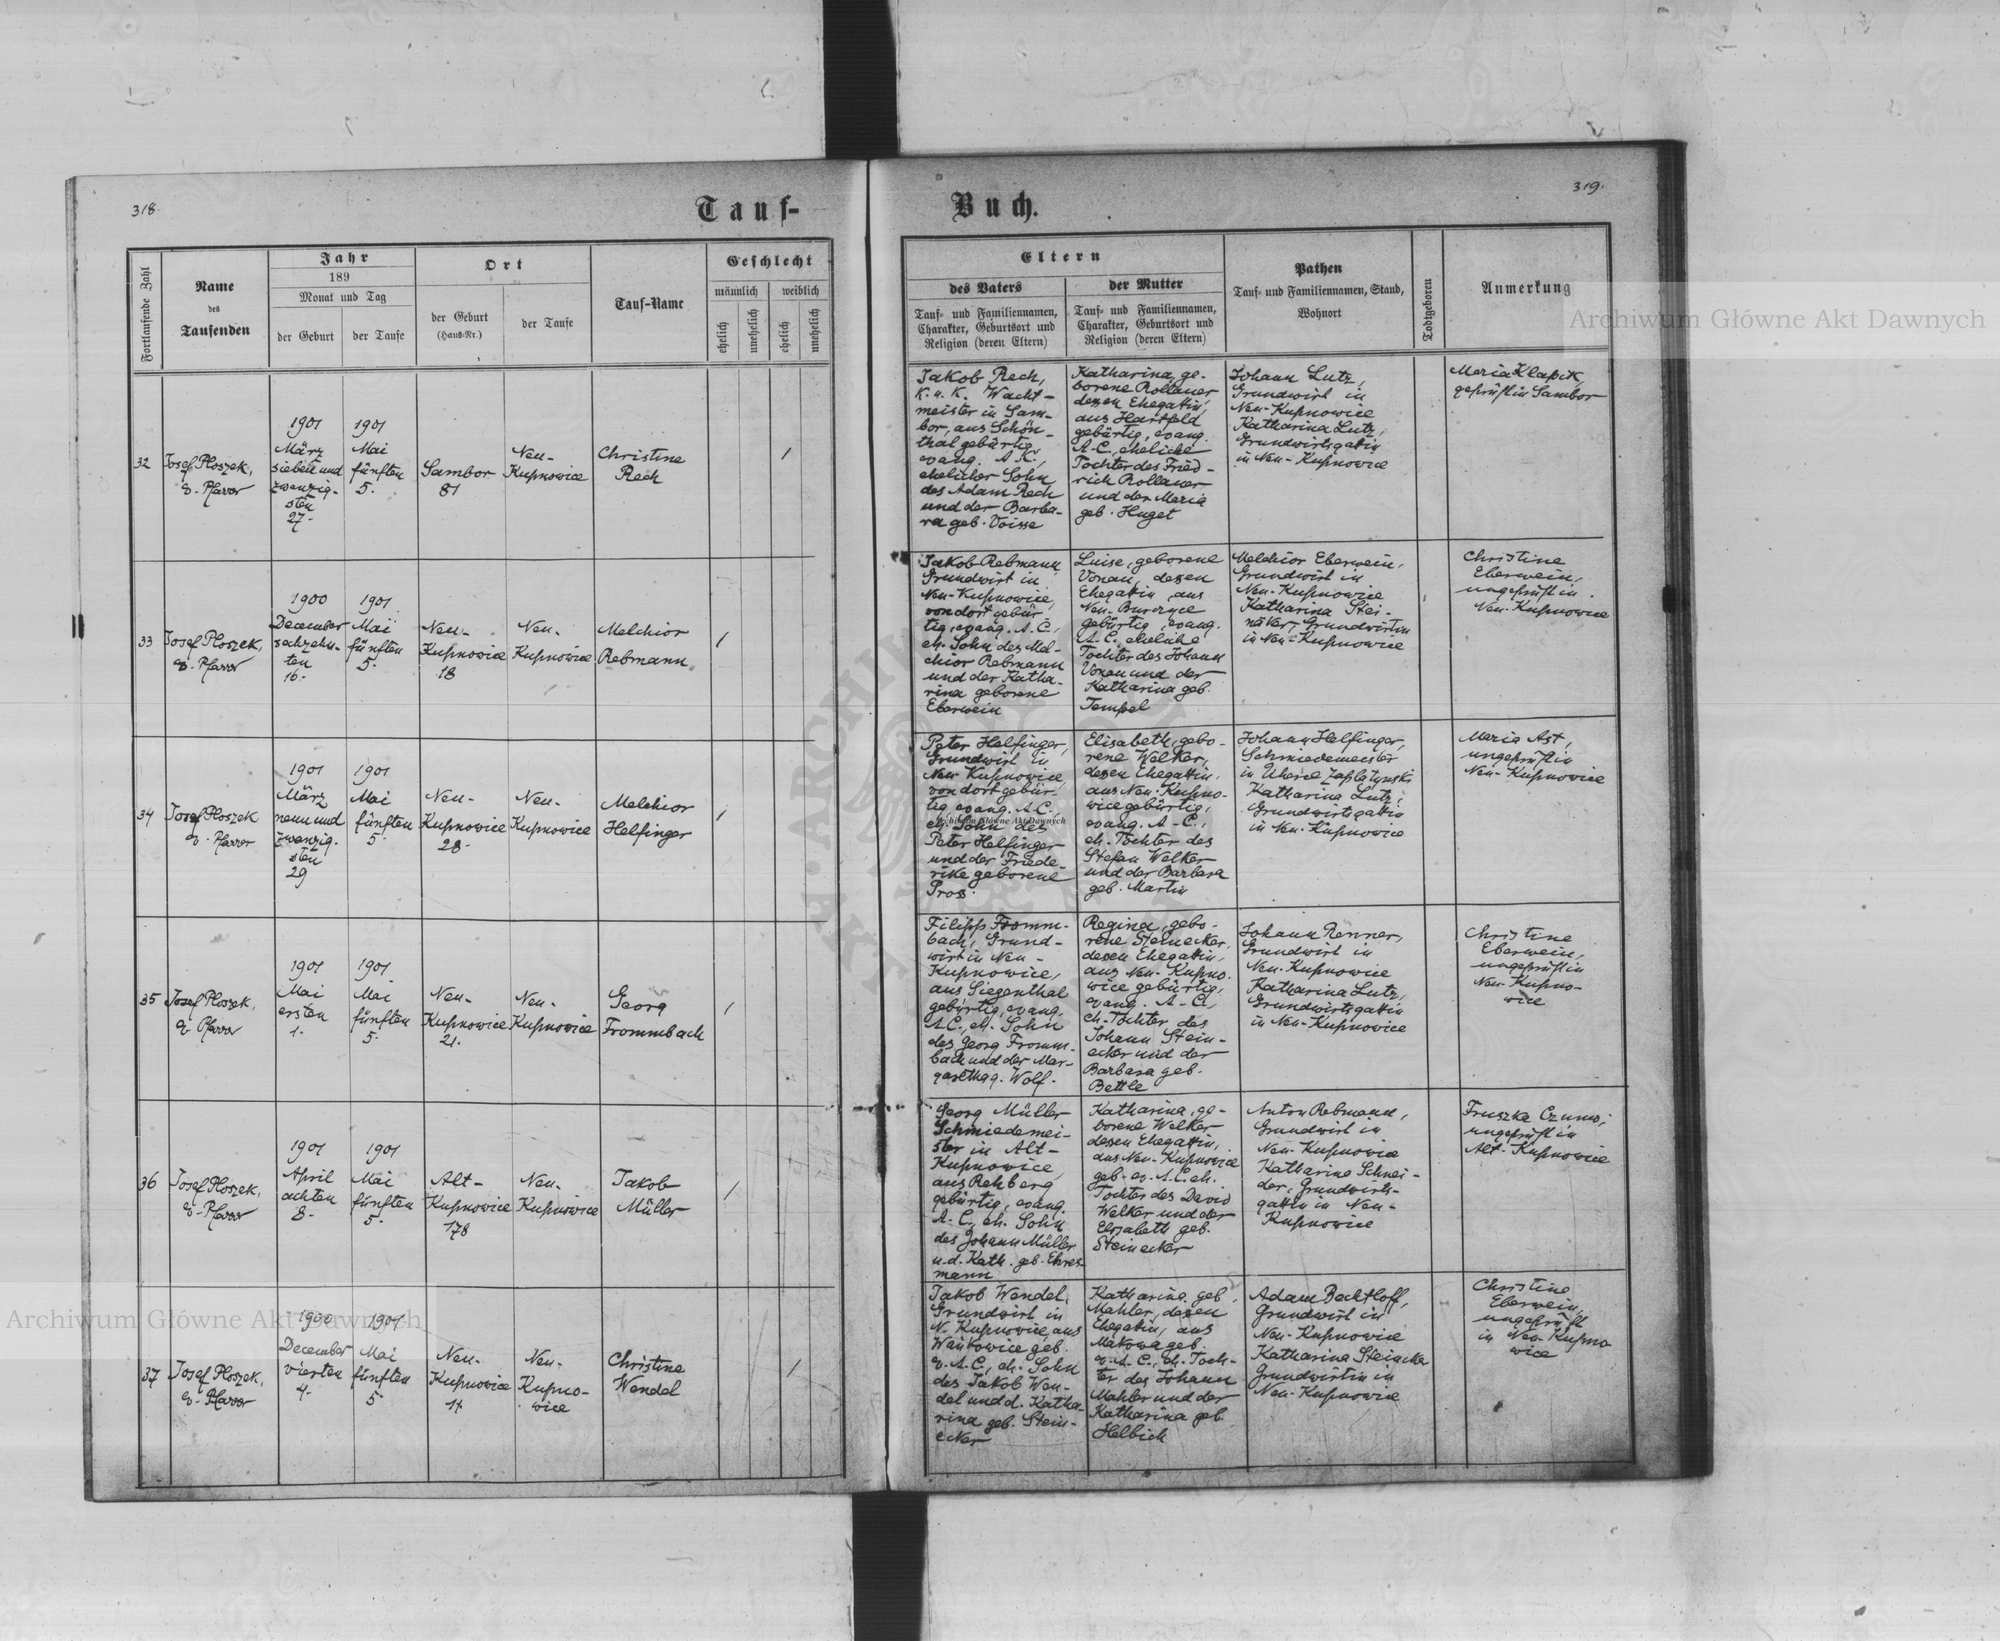 318.
Tauf-
Buch.
319.
Fortlaufende Zahl
Name
des
Taufenden
Jahr
189
Monat und Tag
der Geburt
der Taufe
Ort
der Geburt
(Haus-Nr.)
der Taufe
Tauf-Name
Geschlecht
männlich
weiblich
ehelich
unehelich
ehelich
unehelich
Eltern
des Vaters
Tauf- und Familiennamen,
Charakter, Geburtsort und
Religion (deren Eltern)
der Mutter
Tauf- und Familiennamen,
Charakter, Geburtsort und
Religion (deren Eltern)
Pathen
Tauf- und Familiennamen, Stand,
Wohnort
Todtgeboren
Anmerkung
32
Josef Ploszek,
ev. Pfarrer
1901
März
sieben und
zwanzig-
sten
27.
1901
Mai
fünften
5.
Sambor
81
Neu-
Kupnowice
Christine
Rech
1
Jakob Rech,
K. u. K. Wacht-
meister in Sam-
bor, aus Schön-
thal gebürtig,
evang. A.K.,
ehelicher Sohn
des Adam Rech
und der Barba-
ra geb. Voisse
Katharina, ge-
borene Rollauer
dessen Ehegatin,
aus Hartfeld
gebürtig, evang.
A.C., eheliche
Tochter des Fried-
rich Rollauer
und der Maria
geb. Huget
Johann Lutz,
Grundwirt in
Neu-Kupnowice
Katharina Lutz,
Grundwirtsgattin
in Neu-Kupnowice
Maria Klapik,
geprüft in Sambor
33
Josef Ploszek,
ev. Pfarrer
1900
December
sechzehn-
ten
16.
1901
Mai
fünften
5.
Neu-
Kupnowice
18
Neu-
Kupnowice
Melchior
Rebmann
1
Jakob Rebmann
Grundwirt in
Neu-Kupnowice,
von dort gebür-
tig, evang. A.C.,
eh. Sohn des Mel-
chior Rebmann
und der Katha-
rina geborene
Eberwein
Luise, geborene
Vonau, dessen
Ehegattin, aus
Neu-Burczyce
gebürtig, evang.
A.C., eheliche
Tochter des Johann
Vonau und der
Katharina geb.
Tempel
Melchior Eberwein,
Grundwirt in
Neu-Kupnowice
Katharina Stei-
näker, Grundwirtin
in Neu-Kupnowice
Christine
Eberwein,
ungeprüft in
Neu-Kupnowice
34
Josef Ploszek
ev. Pfarrer
1901
März
neun und
zwanzig-
sten
29
1901
Mai
fünften
5.
Neu-
Kupnowice
28.
Neu-
Kupnowice
Melchior
Helfinger
1
Peter Helfinger,
Grundwirt in
Neu-Kupnowice
von dort gebür-
tig, evang. A.C.,
eh. Sohn des
Peter Helfinger
und der Friede-
rike geborene
Pross.
Elisabeth, gebo-
rene Welker,
dessen Ehegattin,
aus Neu-Kupno-
wice gebürtig,
evang. A.C.,
eh. Tochter des
Stefan Welker
und der Barbara
geb. Martin
Johann Helfinger,
Schmiedemeister
in Uherce Zaplatynski
Katharina Lutz,
Grundwirtsgattin
in Neu-Kupnowice
Maria Ast,
ungeprüft in
Neu-Kupnowice
35
Josef Ploszek,
ev. Pfarrer
1901
Mai
ersten
1.
1901
Mai
fünften
5.
Neu-
Kupnowice
21.
Neu-
Kupnowice
Georg
Frommbach
1
Filipp Fromm-
bach, Grund-
wirt in Neu-
Kupnowice,
aus Siegenthal
gebürtig, evang.
A.C., eh. Sohn
des Georg Fromm-
bach und der Mar-
garetha g. Wolf.
Regina, gebo-
rene Steinecker,
dessen Ehegattin,
aus Neu-Kupno-
wice gebürtig,
evang. A.C.,
eh. Tochter des
Johann Stein-
ecker und der
Barbara geb.
Bettle
Johann Renner,
Grundwirt in
Neu-Kupnowice
Katharina Lutz,
Grundwirtsgattin
in Neu-Kupnowice
Christine
Eberwein,
ungeprüft in
Neu-Kupno-
wice
36
Josef Ploszek,
ev. Pfarrer
1901
April
achten
8.
1901
Mai
fünften
5.
Alt-
Kupnowice
178
Neu-
Kupnowice
Jakob
Müller
1
Georg Müller
Schmiedemei-
ster in Alt-
Kupnowice
aus Rehberg
gebürtig, evang.
A.C., eh. Sohn
des Johann Müller
u. d. Kath. geb. Ehres-
mann
Katharina, ge-
borene Welker
dessen Ehegattin,
aus Neu-Kupnowice
geb. ev. A.C. eh.
Tochter des David
Welker und der
Elisabeth geb.
Steinecker
Anton Rebmann,
Grundwirt in
Neu-Kupnowice
Katharina Schnei-
der, Grundwirts-
gattin in Neu-
Kupnowice
Fruszka Czumo,
ungeprüft in
Alt-Kupnowice
37
Josef Ploszek,
ev. Pfarrer
1900
December
vierten
4.
1901
Mai
fünften
5.
Neu-
Kupnowice
14
Neu-
Kupno-
wice
Christine
Wendel
1
Jakob Wendel,
Grundwirt in
N. Kupnowice, aus
Wankowice geb.
ev. A.C., eh. Sohn
des Jakob Wen-
del und d. Katha-
rina geb. Stein-
ecker
Katharina geb.
Mahler, dessen
Ehegattin, aus
Makowa geb.
ev. A.C., eh. Toch-
ter des Johann
Mahler und der
Katharina geb.
Helbich
Adam Bechtloff,
Grundwirt in
Neu-Kupnowice
Katharina Steinecker
Grundwirtin in
Neu-Kupnowice
Christine
Eberwein,
ungeprüft
in Neu-Kupno
wice
Archiwum Główne Akt Dawnych
Archiwum Główne Akt Dawnych
Archiwum Główne Akt Dawnych